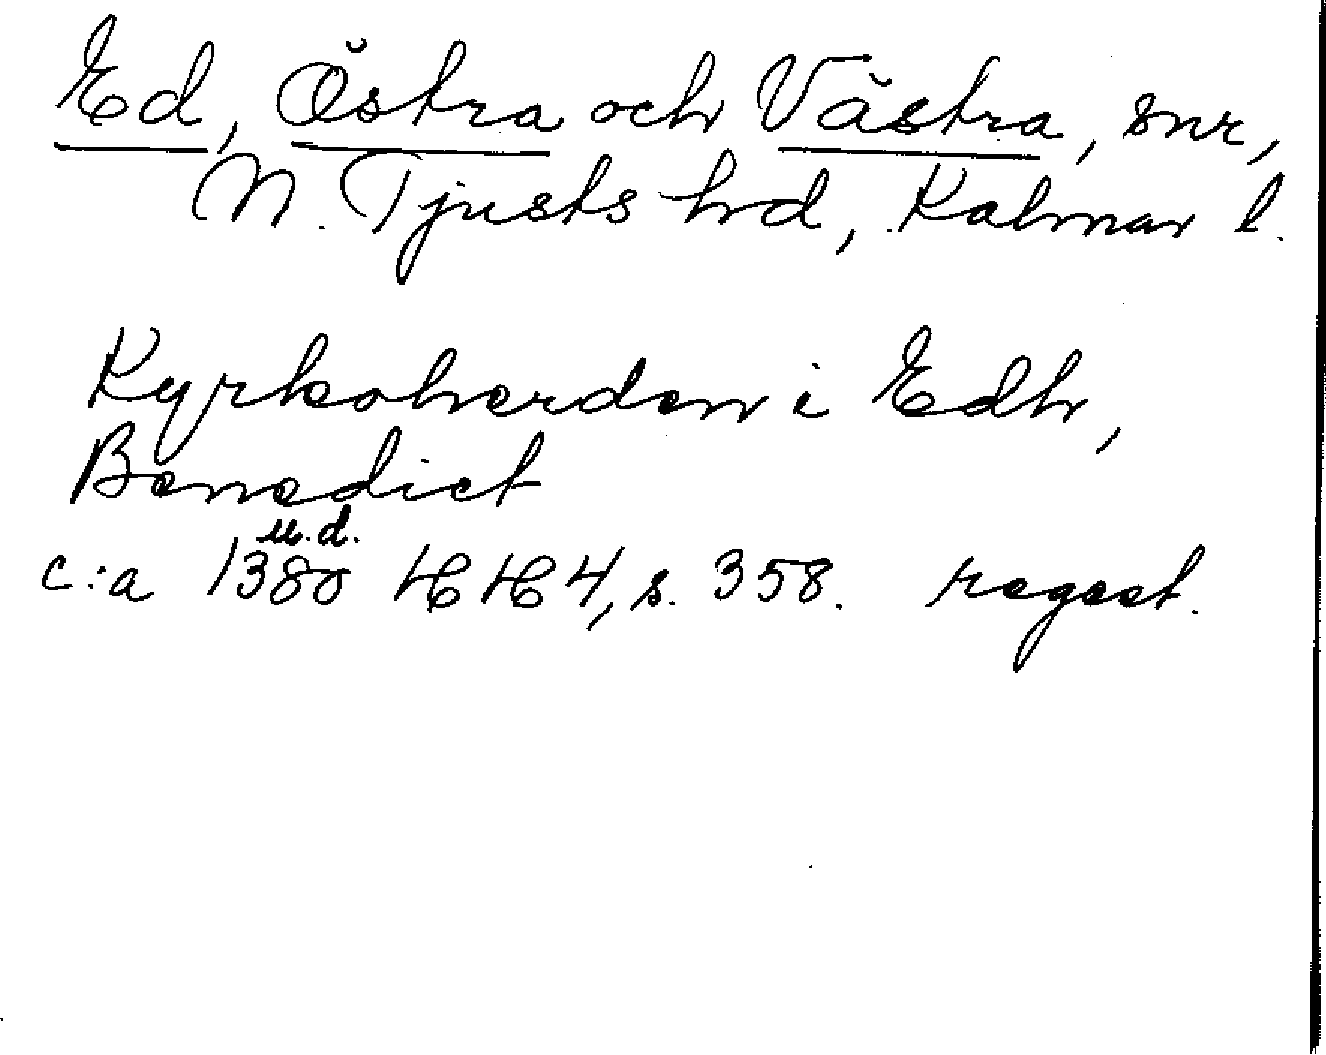 Ed, Östra och Västra, snr,
N. Tjusts hd, Kalmar l.
Kyrkoherden i Edh,
Benedict
u.d.
c:a 1380 HH 4, s. 358. regest.